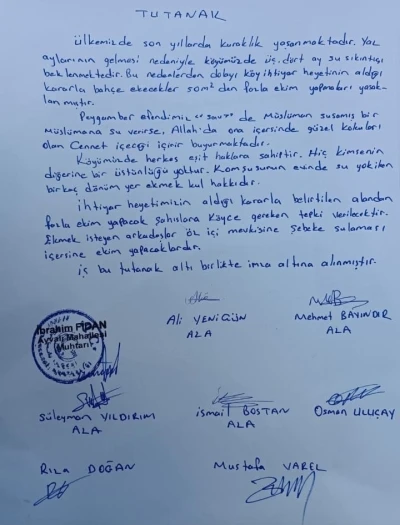 TUTANAK
Ülkemizde son yıllarda kuraklık yaşanmaktadır. Yaz
aylarının gelmesi nedeniyle köyümüzde üç, dört ay su sıkıntısı
beklenmektedir. Bu nedenlerden dolayı köy ihtiyar heyetinin aldığı
kararla bahçe ekecekler 50m² dan fazla ekim yapmaları yasak-
lanmıştır.
Peygamber efendimiz "sav" de Müslüman susamış bir
Müslümana su verirse, Allah'da ona içersinde güzel kokuları
olan Cennet içeceği içirir buyurmaktadır.
Köyümüzde herkes eşit haklara sahiptir. Hiç kimsenin
diğerine bir üstünlüğü yoktur. Komşusunun evinde su yokilen
birkaç dönüm yer ekmek kul hakkıdır.
İhtiyar heyetimizin aldığı kararla belirtilen alandan
fazla ekim yapacak şahıslara köyce gereken tepki verilecektir.
Ekmek isteyen arkadaşlar öz içi mevkisine şebeke sulaması
içersine ekim yapacaklardır.
iş bu tutanak altı birlikte imza altına alınmıştır.
İbrahim FİDAN
Ayvalı Mahallesi
Muhtarı
Ali YENİGÜN
AZA
Mehmet BAYINDIR
AZA
Süleyman YILDIRIM
AZA
İsmail BOSTAN
AZA
Osman ULUÇAY
Rıza DOĞAN
Mustafa VAREL